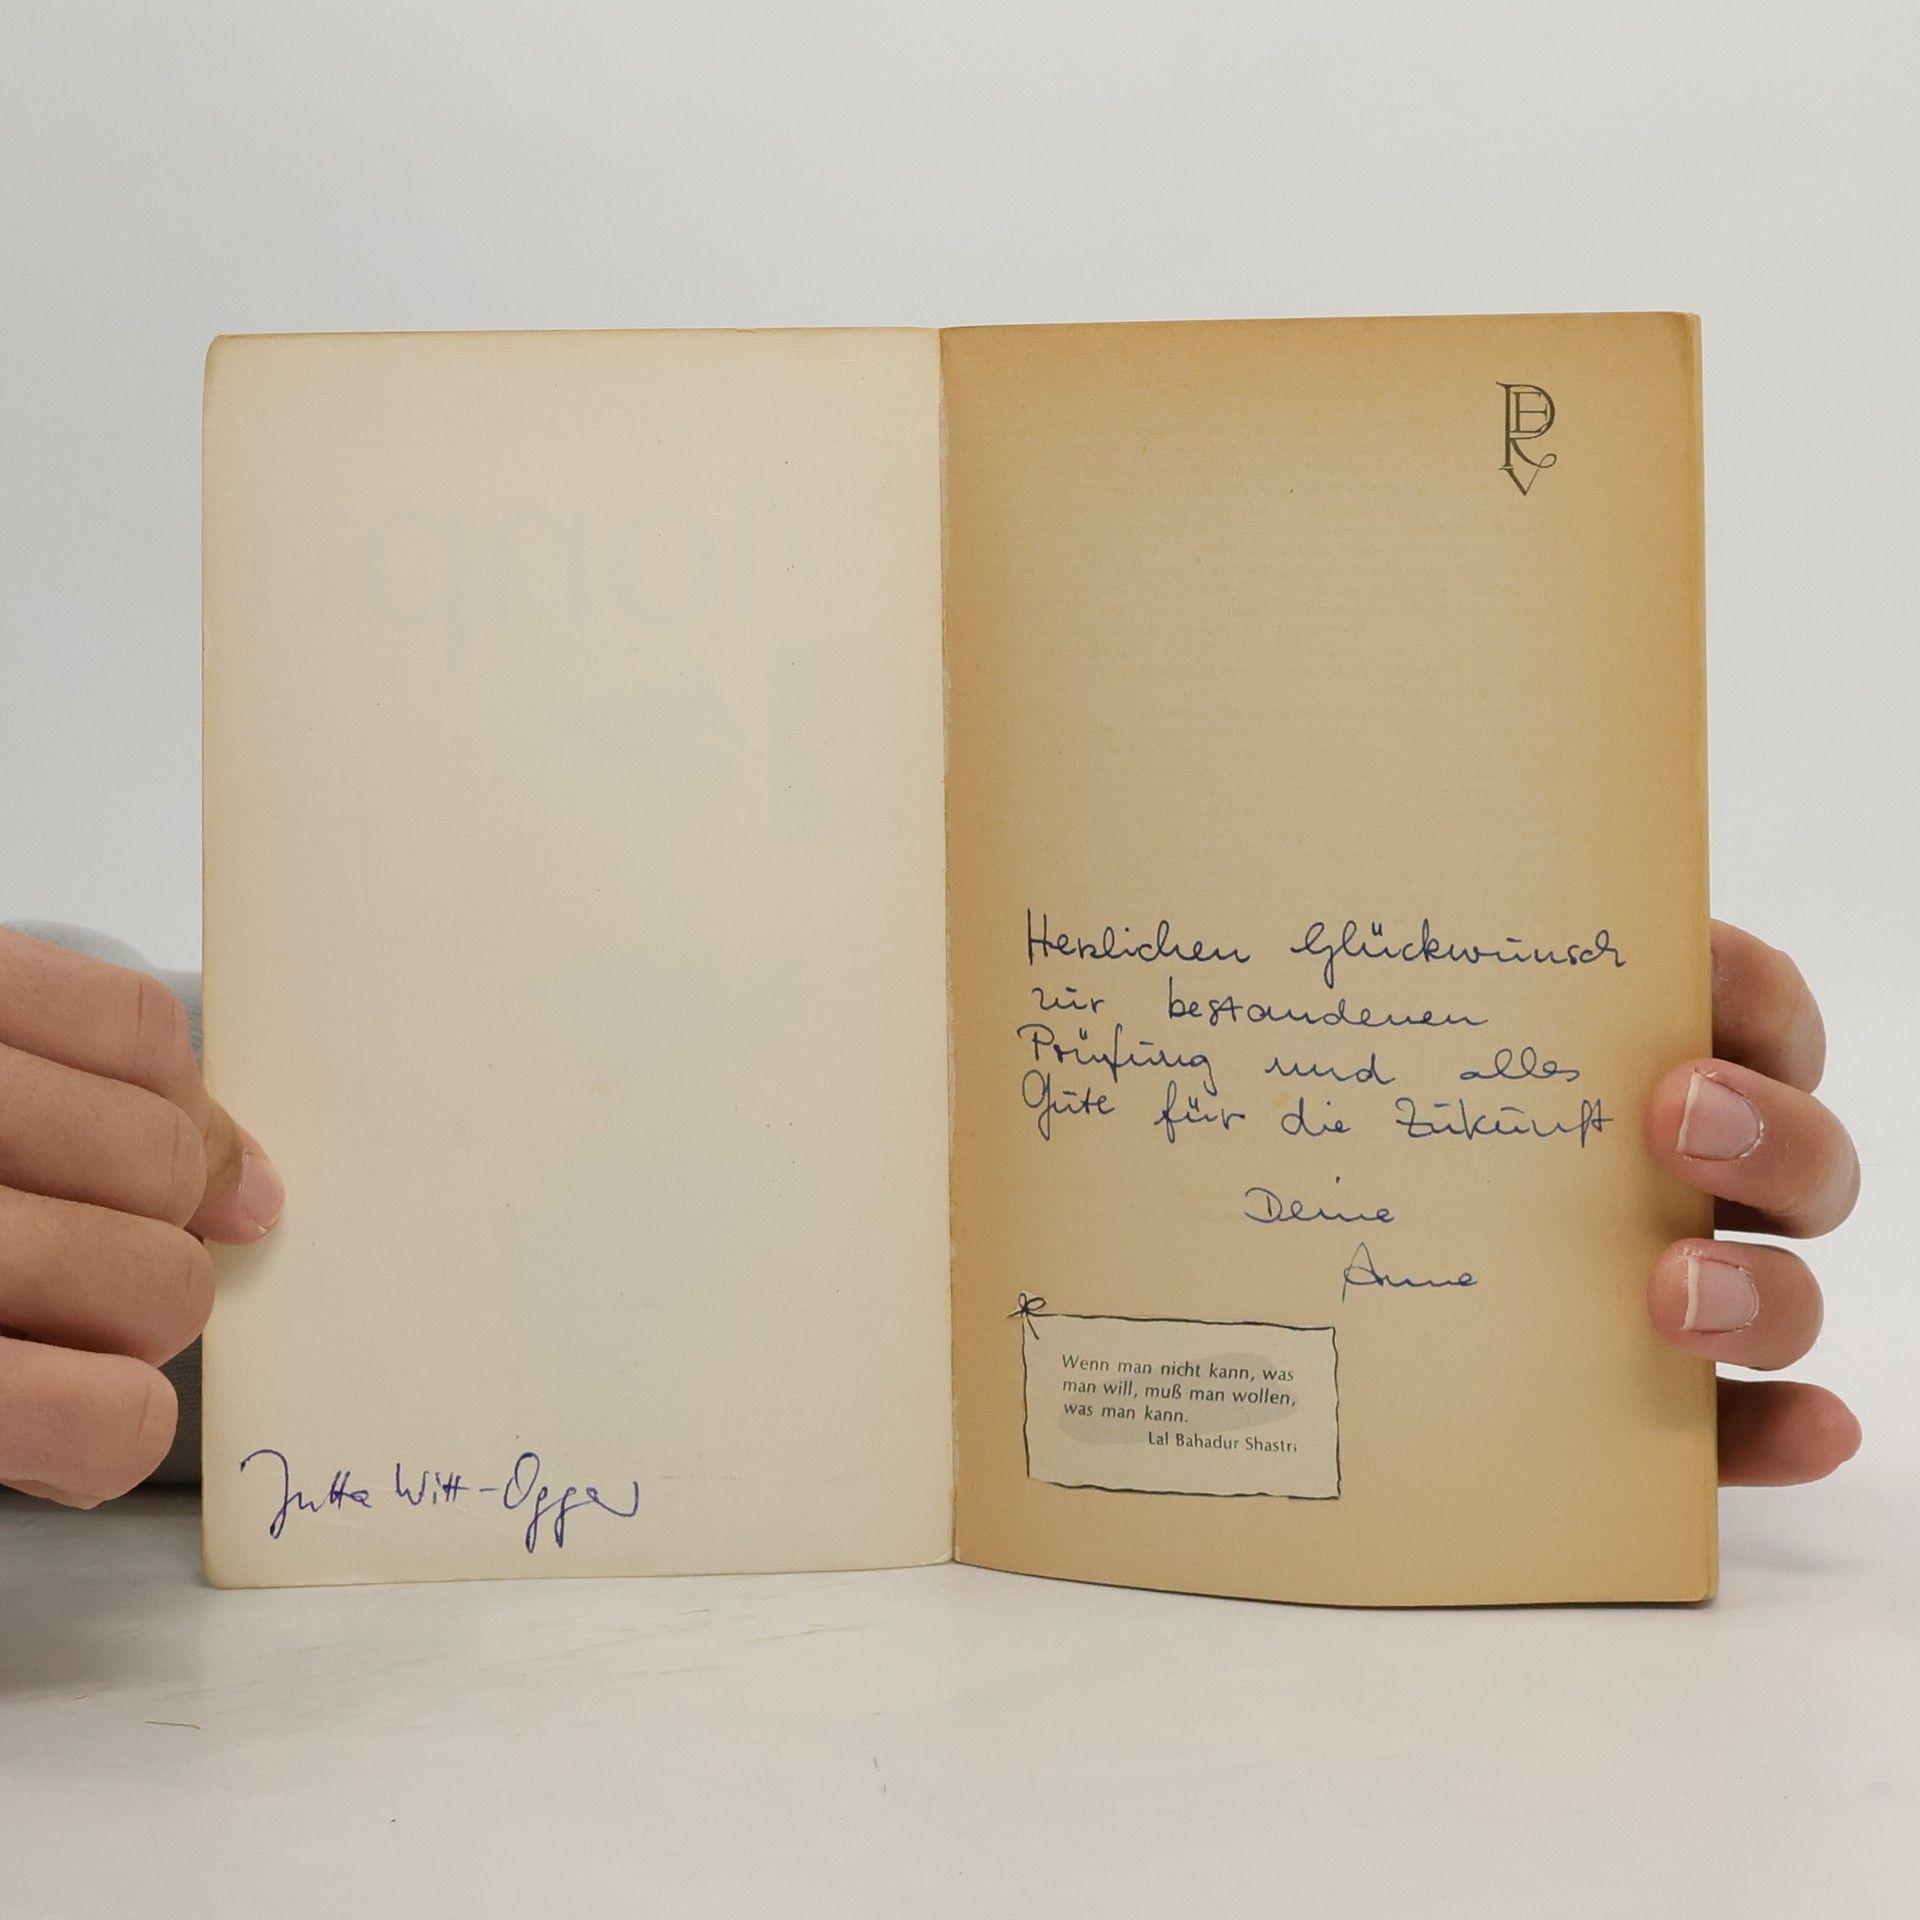 Jutta Witt-Ogger
Herzlichen Glückwunsch
zur bestandenen
Prüfung und alles
Gute für die Zukunft
Deine
Anne
Wenn man nicht kann, was
man will, muß man wollen,
was man kann.
Lal Bahadur Shastri